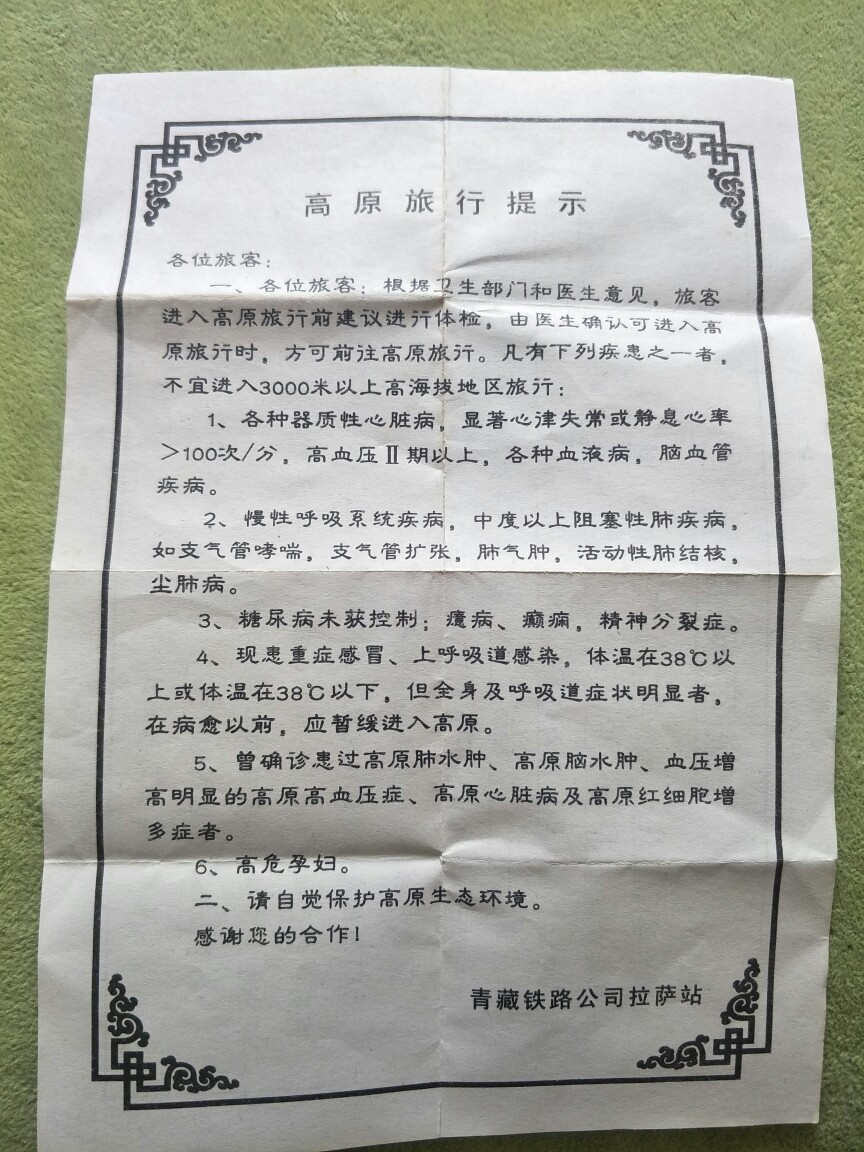 高原旅行提示
各位旅客：
一、各位旅客：根据卫生部门和医生意见，旅客
进入高原旅行前建议进行体检，由医生确认可进入高
原旅行时，方可前往高原旅行。凡有下列疾患之一者，
不宜进入3000米以上高海拔地区旅行：
1、各种器质性心脏病，显著心律失常或静息心率
＞100次/分，高血压Ⅱ期以上，各种血液病，脑血管
疾病。
2、慢性呼吸系统疾病，中度以上阻塞性肺疾病，
如支气管哮喘，支气管扩张，肺气肿，活动性肺结核，
尘肺病。
3、糖尿病未获控制；癔病、癫痫，精神分裂症。
4、现患重症感冒、上呼吸道感染，体温在38℃以
上或体温在38℃以下，但全身及呼吸道症状明显者，
在病愈以前，应暂缓进入高原。
5、曾确诊患过高原肺水肿、高原脑水肿、血压增
高明显的高原高血压症、高原心脏病及高原红细胞增
多症者。
6、高危孕妇。
二、请自觉保护高原生态环境。
感谢您的合作！
青藏铁路公司拉萨站